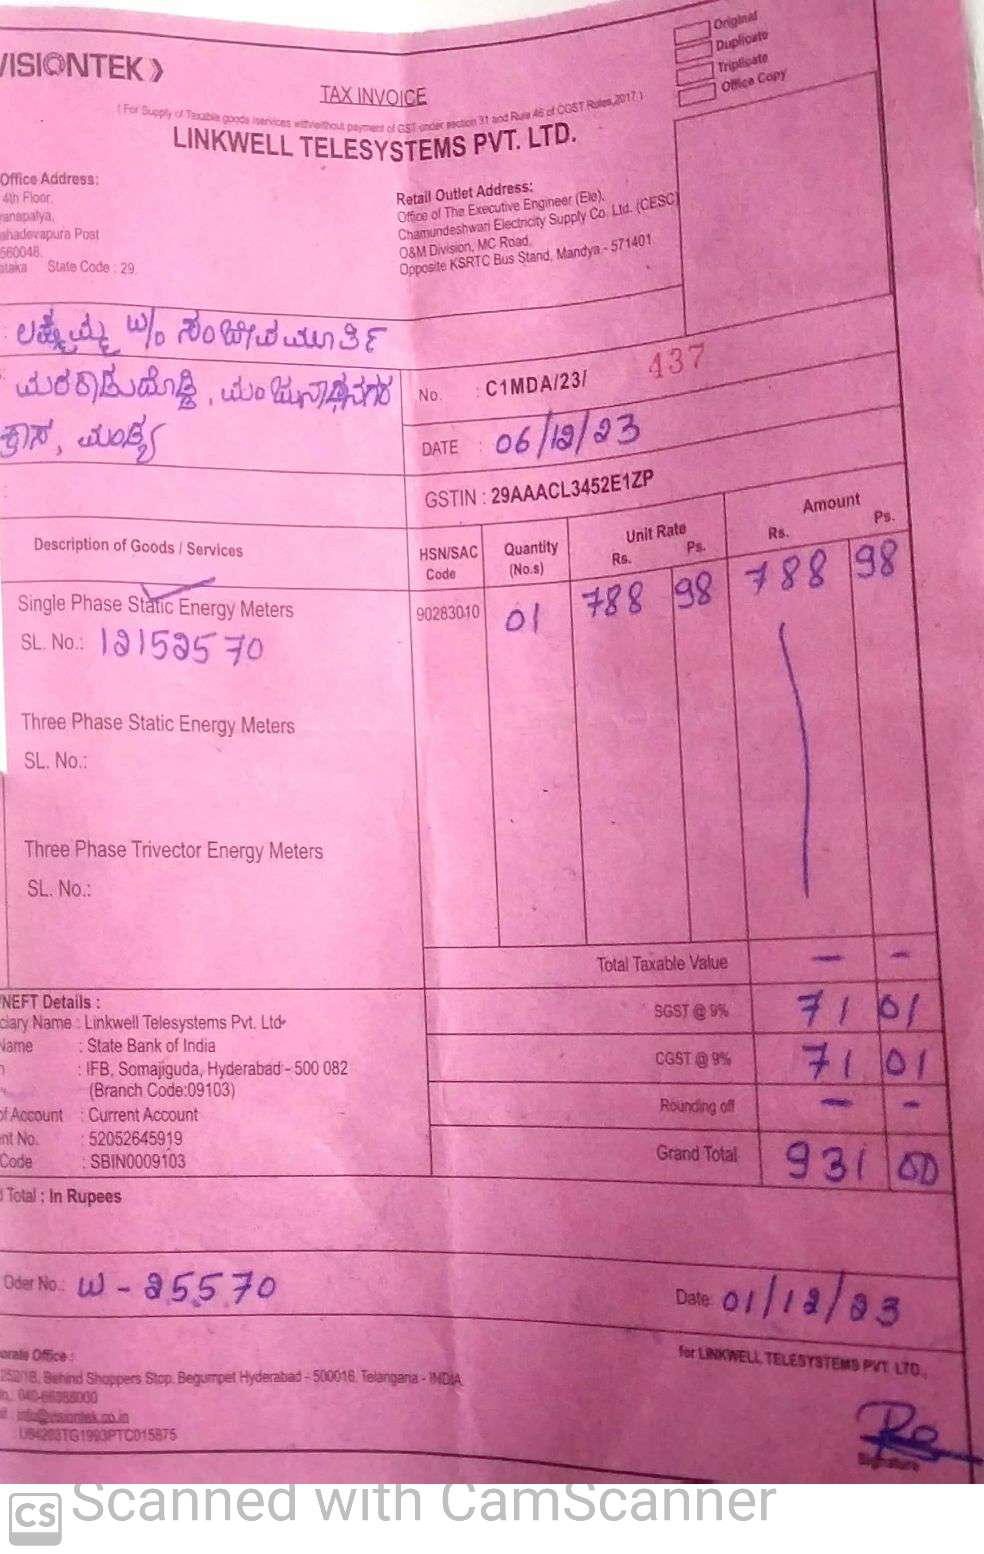 VISIONTEK
Original
Duplicate
Triplicate
Office Copy
TAX INVOICE
( For Supply of Taxable goods /services with/without payment of GST under section 31 and Rule 46 of CGST Rules,2017 )
LINKWELL TELESYSTEMS PVT. LTD.
Office Address:
4th Floor,
anapalya,
ahadevapura Post
560048.
ataka State Code : 29.
Retail Outlet Address:
Office of The Executive Engineer (Ele),
Chamundeshwari Electricity Supply Co. Ltd. (CESC)
O&M Division, MC Road,
Opposite KSRTC Bus Stand, Mandya - 571401.
w/o ಸಂಜೀವಮೂರ್ತಿ
ಮರಕಾಡುದೊಡ್ಡಿ, ಮಂಜುನಾಥನಗರ
ಕ್ರಾಸ, ಮಂಡ್ಯ
No. : C1MDA/23/ 437
DATE : 06/12/23
GSTIN : 29AAACL3452E1ZP
Description of Goods / Services
HSN/SAC Code
Quantity (No.s)
Unit Rate Rs. Ps.
Amount Rs. Ps.
Single Phase Static Energy Meters 90283010 01 788 98 788 98
SL. No.: 12152570
Three Phase Static Energy Meters
SL. No.:
Three Phase Trivector Energy Meters
SL. No.:
Total Taxable Value — -
SGST @ 9% 71 01
CGST @ 9% 71 01
Rounding off — -
Grand Total 931 00
NEFT Details :
ciary Name : Linkwell Telesystems Pvt. Ltd
Name : State Bank of India
: IFB, Somajiguda, Hyderabad - 500 082
(Branch Code:09103)
of Account : Current Account
nt No. : 52052645919
Code : SBIN0009103
Total : In Rupees
Oder No.: W - 25570
Date: 01/12/23
orate Office :
252/1B, Behind Shoppers Stop, Begumpet Hyderabad - 500016, Telangana - INDIA
040-66388000
info@visiontek.co.in
U64203TG1993PTC015875
for LINKWELL TELESYSTEMS PVT. LTD.,
Signature
CS Scanned with CamScanner